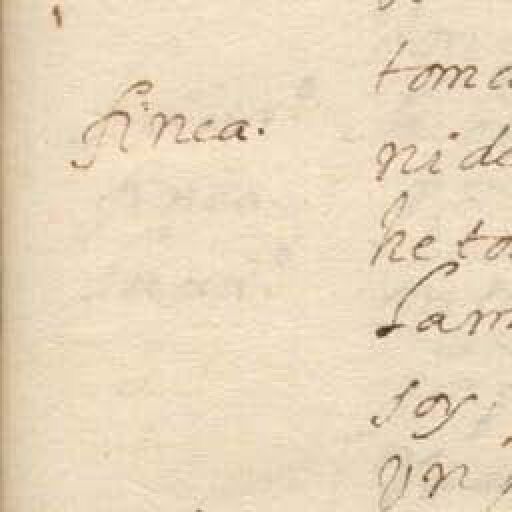 finea.
toma
ni de
he to
Lam
soy,
un